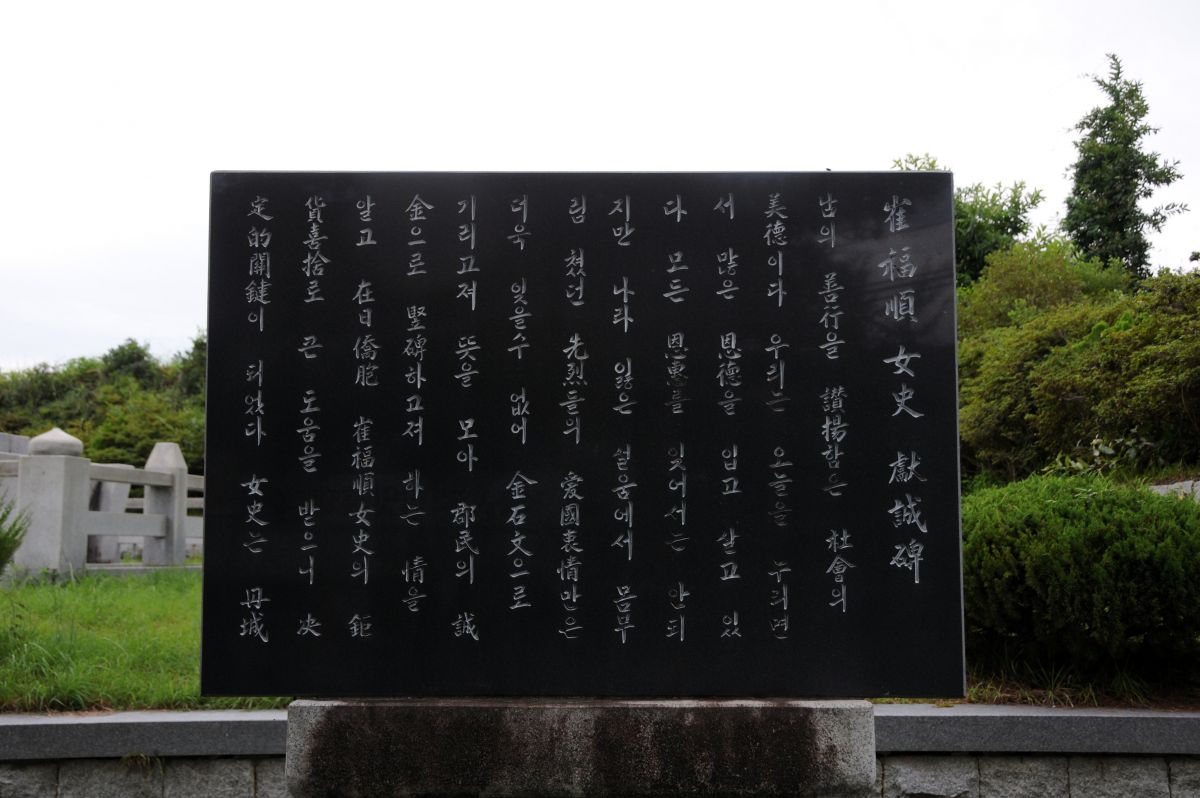 崔福順 女史 獻誠碑
남의 善行을 讃揚함은 社會의
美德이다 우리는 오늘을 누리면
서 많은 恩德을 입고 살고 있
다 모든 恩惠를 잊어서는 안되
지만 나라 잃은 설움에서 몸부
림 쳤던 先烈들의 愛國衷情만은
더욱 잊을수 없어 金石文으로
기리고져 뜻을 모아 郡民의 誠
金으로 竪碑하고져 하는 情을
알고 在日僑胞 崔福順女史의 鉅
貨喜捨로 큰 도움을 받으니 决
定的關鍵이 되었다 女史는 丹城